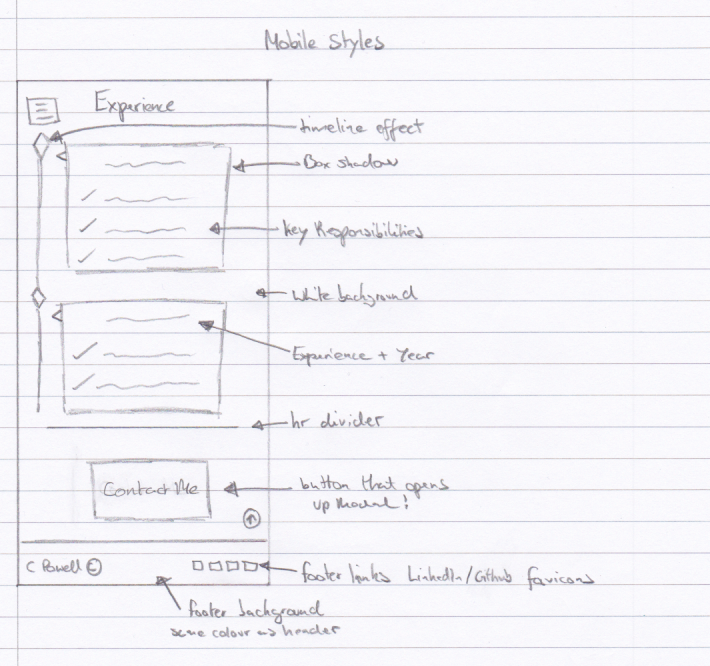 Mobile Styles
Experience
timeline effect
Box shadow
Key Responsibilities
White background
Experience + Year
hr divider
Contact Me
button that opens
up Modal!
C Powell
footer links LinkedIn/Github favicons
footer background
same colour as header